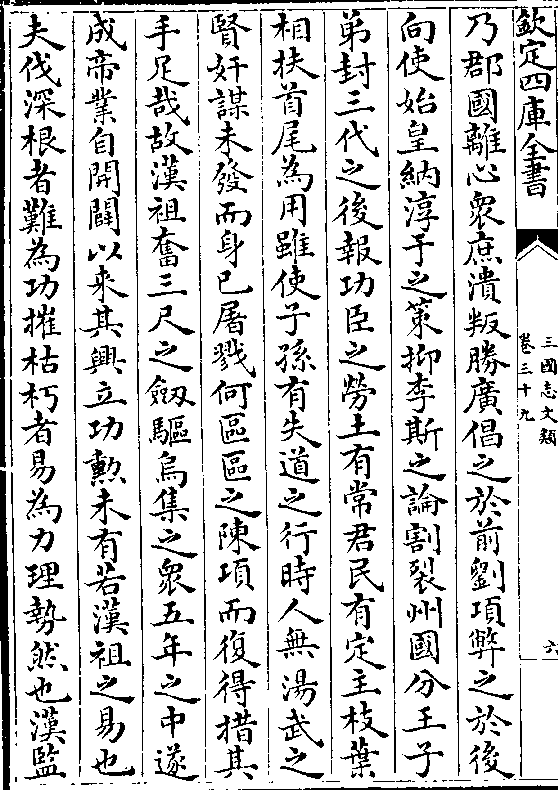 欽定四庫全書
三國志文類
卷三十九
六
乃郡國離心衆庶潰叛勝廣倡之於前劉項弊之於後
向使始皇納淳于之策抑李斯之論割裂州國分王子
弟封三代之後報功臣之勞土有常君民有定主枝葉
相扶首尾為用雖使子孫有失道之行時人無湯武之
賢奸謀未發而身已屠戮何區區之陳項而復得措其
手足哉故漢祖奮三尺之劔驅烏集之衆五年之中遂
成帝業自開闢以来其興立功勲未有若漢祖之易也
夫伐深根者難為功摧枯朽者易為力理勢然也漢監